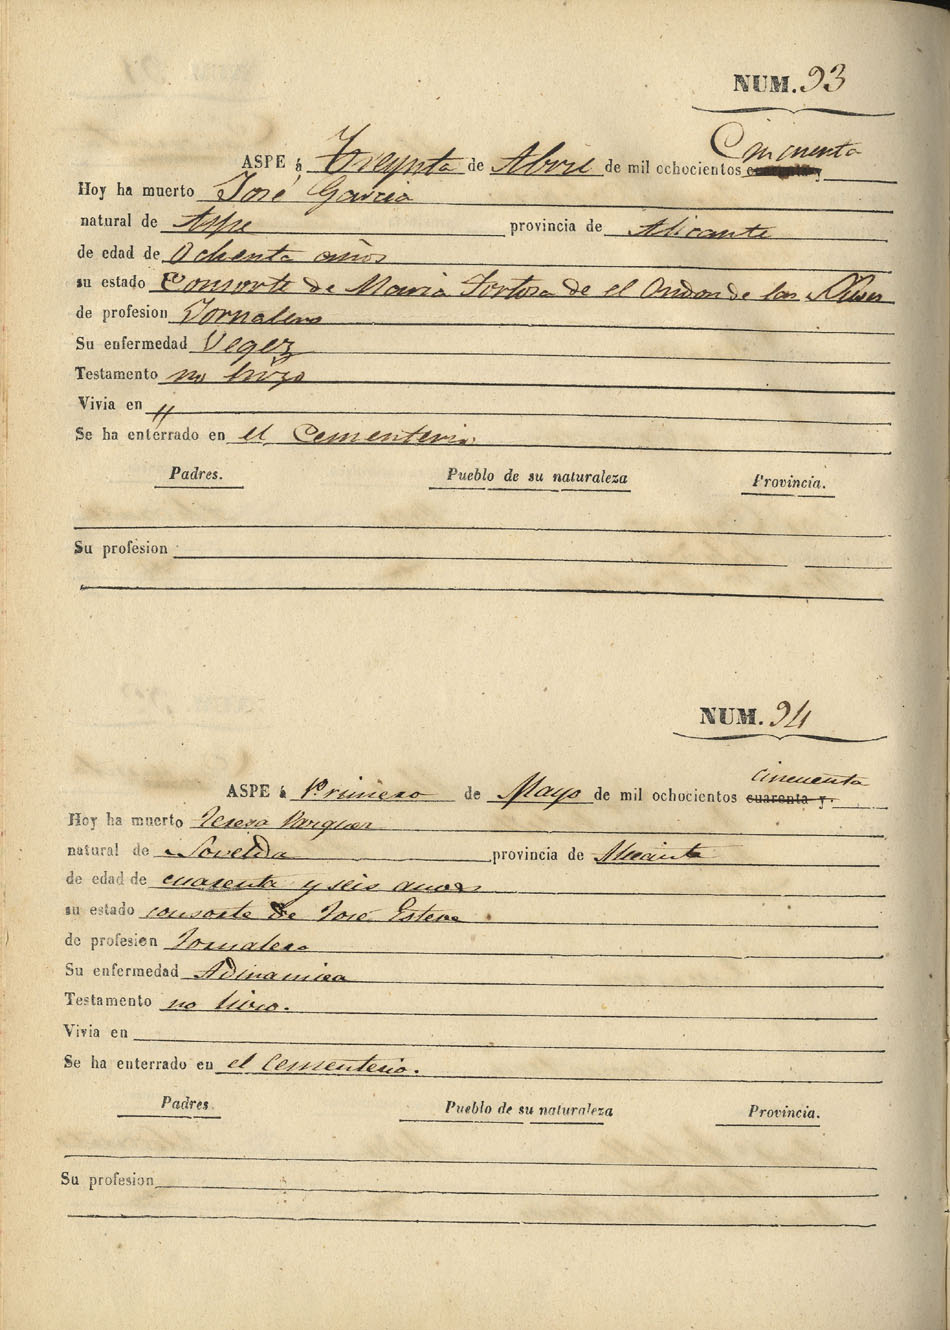 NUM. 93
ASPE á Treynta de Abril de mil ochocientos cuarenta y Cincuenta
Hoy ha muerto José Garcia
natural de Aspe provincia de Alicante
de edad de Ochenta años
su estado Consorte de Maria Tortosa de el Ondon de las
de profesion Jornalero
Su enfermedad Vegez
Testamento no hizo
Vivia en "
Se ha enterrado en el Cementerio.
Padres. Pueblo de su naturaleza Provincia.
Su profesion
NUM. 94
ASPE á Primero de Mayo de mil ochocientos cuarenta y cincuenta
Hoy ha muerto Teresa
natural de Novelda provincia de Alicante
de edad de cuarenta y seis anos
su estado consorte de José Esteve
de profesion Jornalero
Su enfermedad Adinamica
Testamento no hizo.
Vivia en
Se ha enterrado en el Cementerio.
Padres. Pueblo de su naturaleza Provincia.
Su profesion